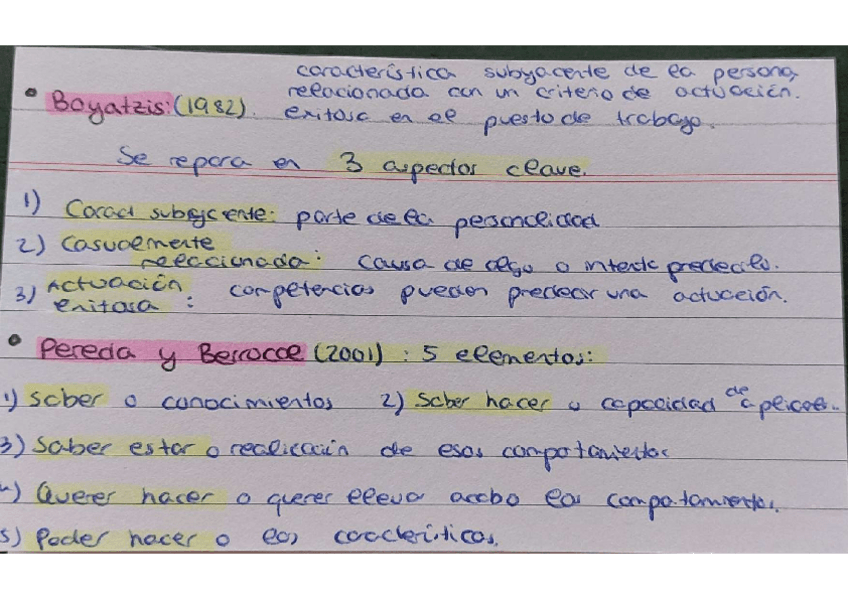 característica subyacente de la persona,
relacionada con un criterio de actuación.
• Boyatzis: (1982). exitosa en el puesto de trabajo.
Se repara en 3 aspectos clave.
1) Caract subyacente: parte de la personalidad
2) Casualmente
relaccionada: causa de algo o intenta predecirlo.
3) Actuación
exitosa : competencias pueden predecir una actuación.
• Pereda y Berrocal (2001) : 5 elementos:
1) Saber o conocimientos 2) Saber hacer o capacidad de aplicar..
3) Saber estar o realización de esos comportamientos
4) Querer hacer o querer llevar acabo los comportamientos.
5) Poder hacer o las características.